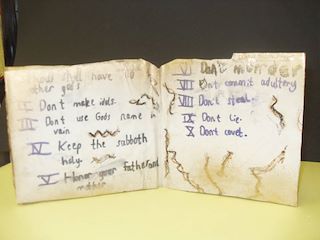 Thou shall have no
other gods
II Dont make idols.
III Dont use Gods name in
vain
IV Keep the sabboth
holy.
V Honor your father and
mother
VI Don't murder
VII Dont commit adultery
VIII Don't steal.
IX Dont lie.
X Dont covet.